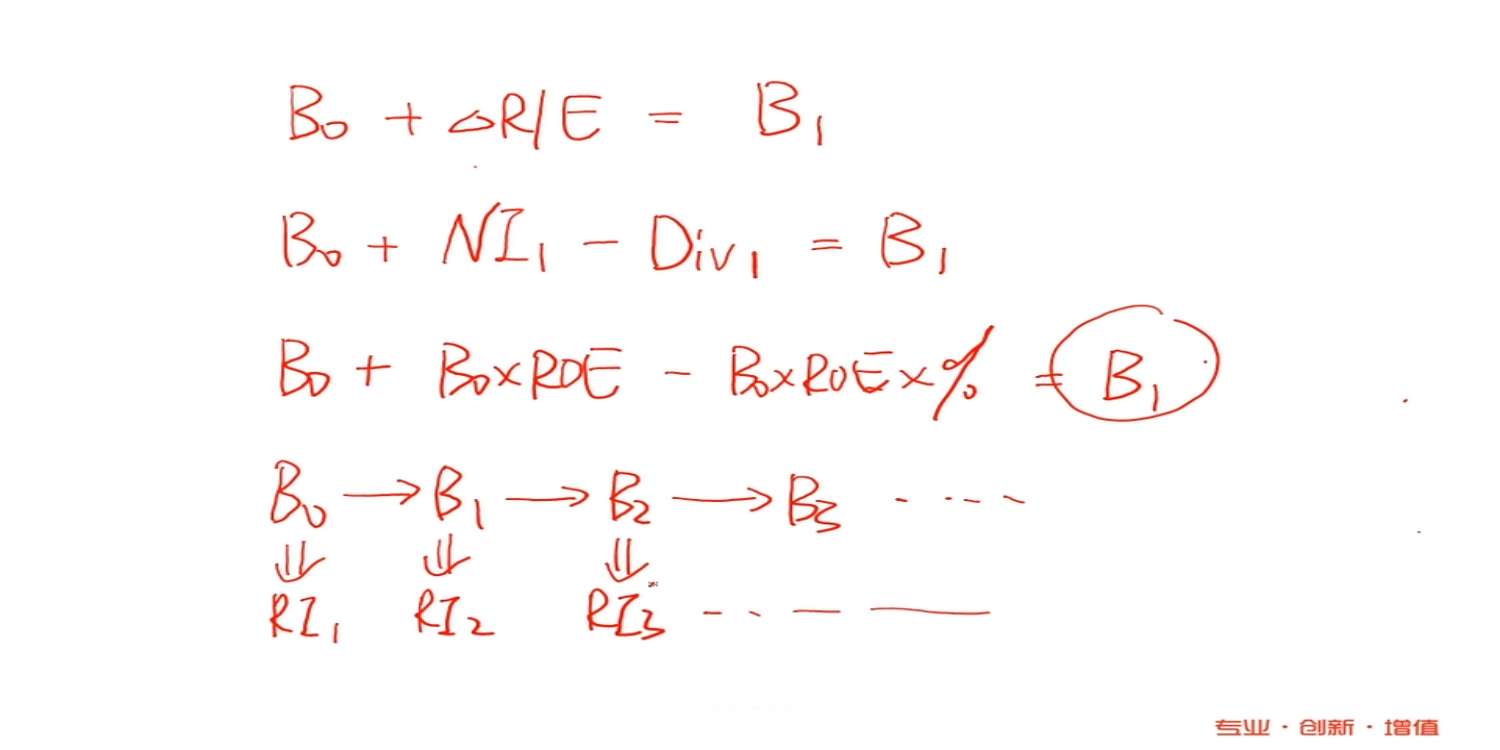 B₀ + △R/E = B₁
B₀ + NI₁ − Div₁ = B₁
B₀ + B₀×ROE − B₀×ROE×% = B₁
B₀ → B₁ → B₂ → B₃ ····
⇓ ⇓ ⇓
RI₁ RI₂ RI₃ ····
专业·创新·增值